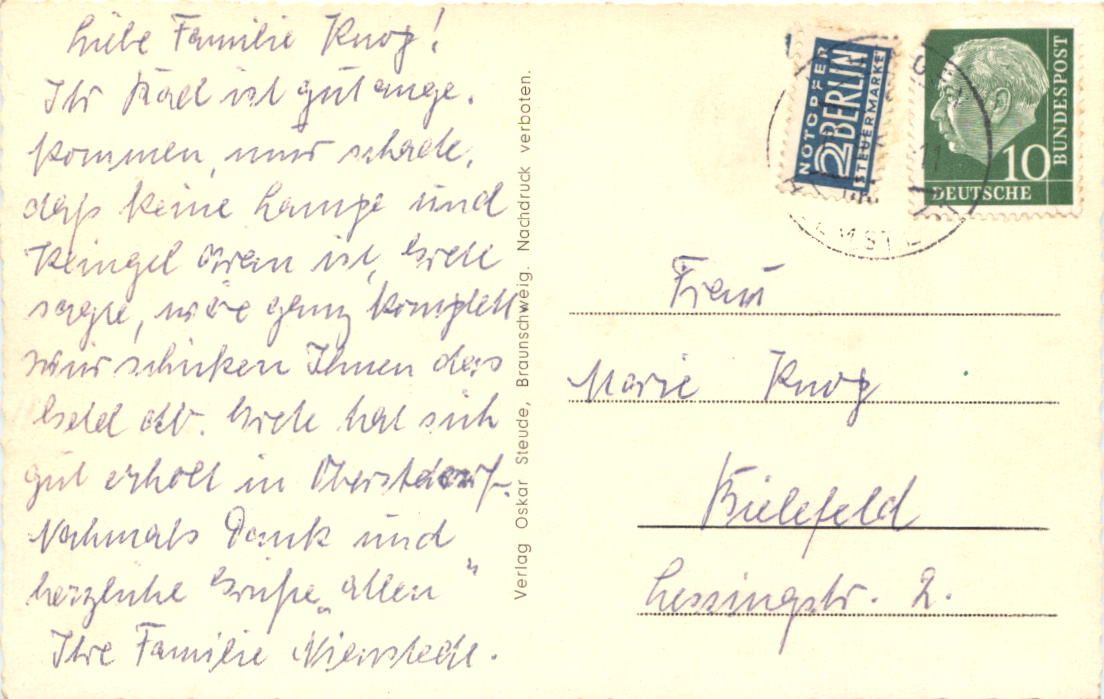 Liebe Familie Knop!
Ihr Rad ist gut ange-
kommen, nur schade,
daß keine Lampe und
Klingel dran ist, Grete
sagte, wäre ganz komplett
wir schicken Ihnen das
Geld ab. Grete hat sich
gut erholt in Oberstdorf.
Nochmals Dank und
herzliche Grüße „allen"
Ihre Familie
Verlag Oskar Steude, Braunschweig. Nachdruck verboten.
NOTOPFER
2 BERLIN
STEUERMARKE
10
DEUTSCHE
BUNDESPOST
Frau
Marie Knop
Bielefeld
Lessingstr. 2.